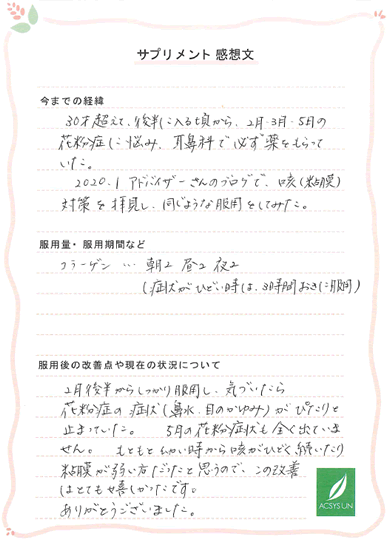 サプリメント 感想文
今までの経緯
30才超えて、後半に入る頃から、2月・3月・5月の
花粉症に悩み、耳鼻科で必ず薬をもらって
いた。
2020.1 アドバイザーさんのブログで、咳(粘膜)
対策を拝見し、同じような服用をしてみた。
服用量・服用期間など
コラーゲン … 朝2 昼2 夜2
(症状がひどい時は、3時間おきに服用)
服用後の改善点や現在の状況について
2月後半からしっかり服用し、気づいたら
花粉症の症状(鼻水、目のかゆみ)がぴたりと
止まっていた。 5月の花粉症状も全く出ていま
せん。 もともと幼い時から咳がひどく続いたり
粘膜が弱い方だったと思うので、この改善
はとても嬉しかったです。
ありがとうございました。
ACSYSUN